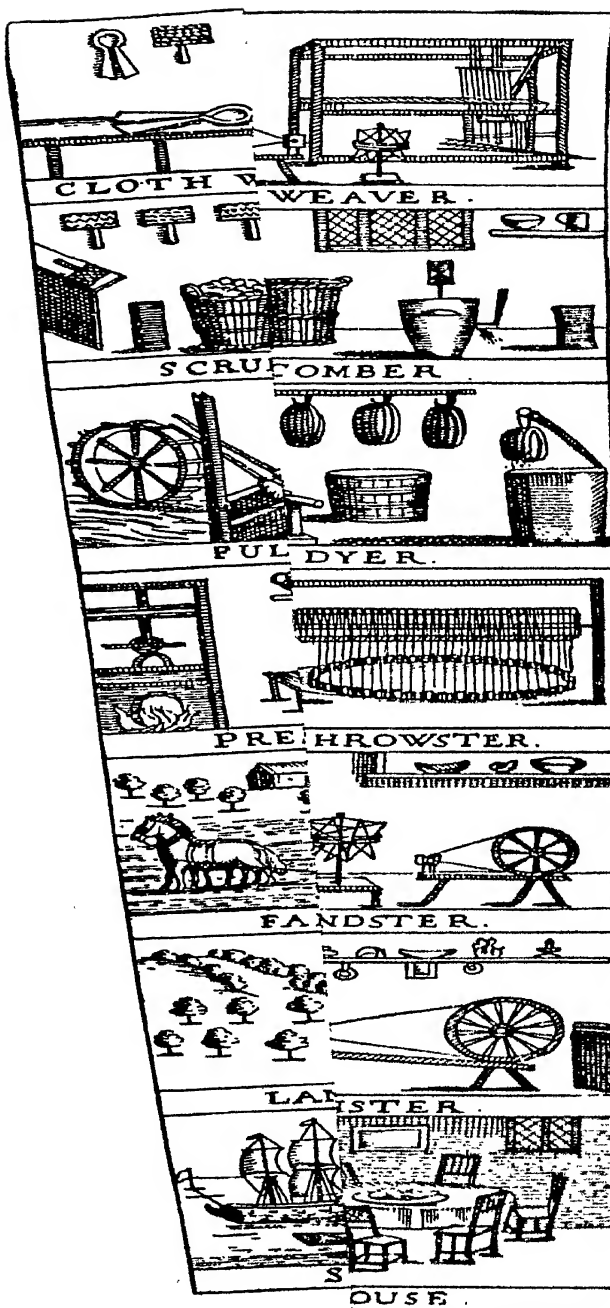 CLOTH W WEAVER.
SCRU COMBER
FUL DYER.
PRE HROWSTER.
FA NDSTER.
LA STER.
S
OUSE.